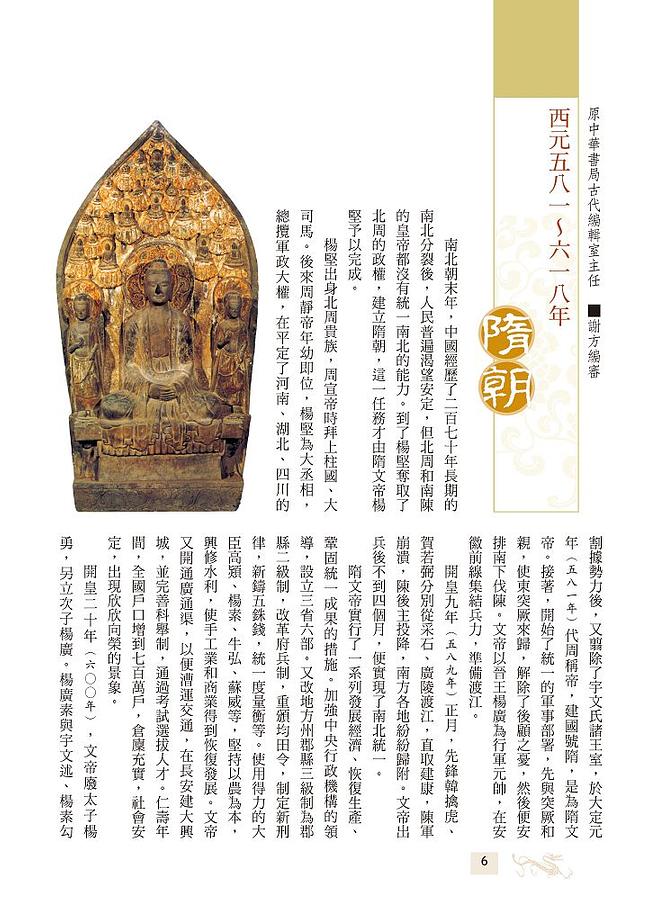 原中華書局古代編輯室主任 ■謝方編審
西元五八一～六一八年
隋朝
南北朝末年，中國經歷了二百七十年長期的
南北分裂後，人民普遍渴望安定，但北周和南陳
的皇帝都沒有統一南北的能力。到了楊堅奪取了
北周的政權，建立隋朝，這一任務才由隋文帝楊
堅予以完成。
楊堅出身北周貴族，周宣帝時拜上柱國、大
司馬。後來周靜帝年幼即位，楊堅為大丞相，
總攬軍政大權，在平定了河南、湖北、四川的
割據勢力後，又翦除了宇文氏諸王室，於大定元
年（五八一年）代周稱帝，建國號隋，是為隋文
帝。接著，開始了統一的軍事部署，先與突厥和
親，使東突厥來歸，解除了後顧之憂，然後便安
排南下伐陳。文帝以晉王楊廣為行軍元帥，在安
徽前線集結兵力，準備渡江。
開皇九年（五八九年）正月，先鋒韓擒虎、
賀若弼分別從采石、廣陵渡江，直取建康，陳軍
崩潰，陳後主投降，南方各地紛紛歸附。文帝出
兵後不到四個月，便實現了南北統一。
隋文帝實行了一系列發展經濟、恢復生產、
鞏固統一成果的措施。加強中央行政機構的領
導，設立三省六部。又改地方州郡縣三級制為郡
縣二級制，改革府兵制，重頒均田令，制定新刑
律，新鑄五銖錢，統一度量衡等。使用得力的大
臣高熲、楊素、牛弘、蘇威等，堅持以農為本，
興修水利，使手工業和商業得到恢復發展。文帝
又開通廣通渠，以便漕運交通，在長安建大興
城，並完善科舉制，通過考試選拔人才。仁壽年
間，全國戶口增到七百萬戶，倉廩充實，社會安
定，出現欣欣向榮的景象。
開皇二十年（六〇〇年），文帝廢太子楊
勇，另立次子楊廣。楊廣素與宇文述、楊素勾
6